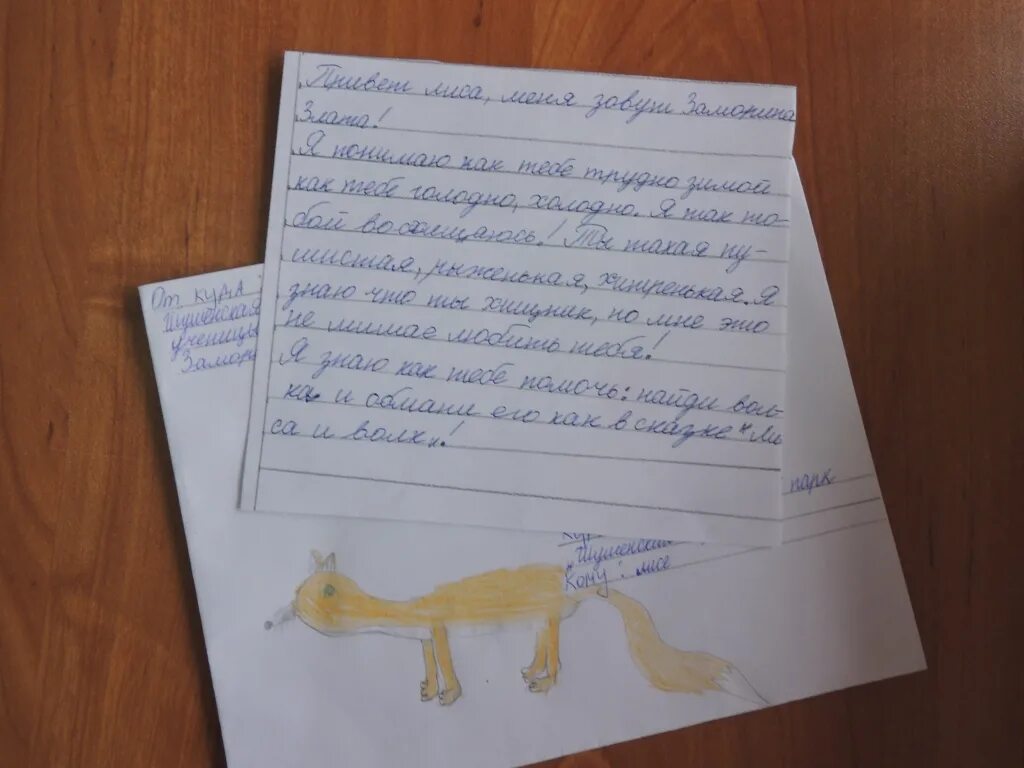 Привет лиса, меня зовут Заморина
Злата!
Я понимаю как тебе трудно зимой
как тебе голодно, холодно. Я так то-
бой восхищаюсь! Ты такая пу-
шистая, рыженькая, хитренькая. Я
знаю что ты хищник, но мне это
не мишае любить тебя!
Я знаю как тебе помочь: найди вол-
ка и обмани его как в сказке "Ли
са и волк"!
От куда
Шушенская
ученицы
Замор
парк
Шушенский
Кому: лисе